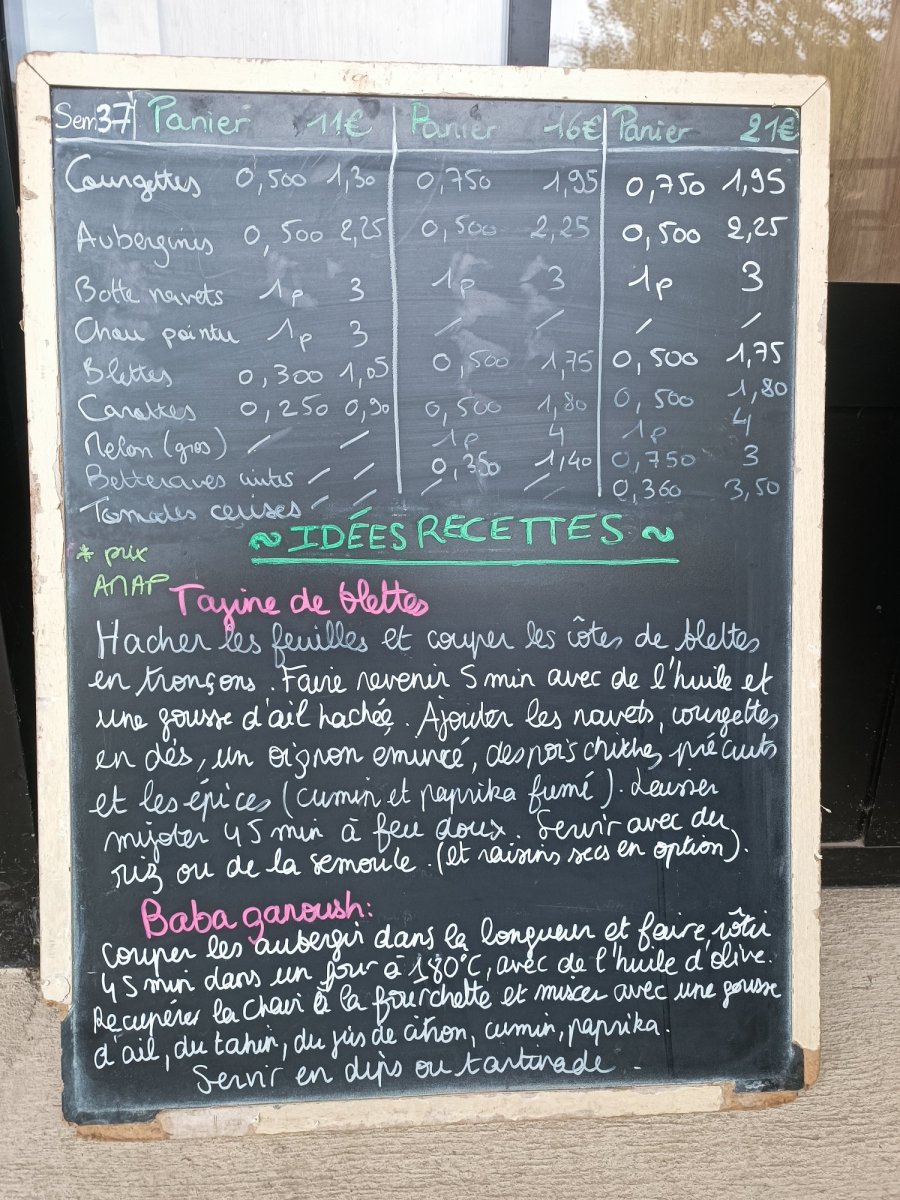 Sem 37 Panier 11€ Panier 16€ Panier 21€
Courgettes 0,500 1,30 0,750 1,95 0,750 1,95
Aubergines 0,500 2,25 0,500 2,25 0,500 2,25
Botte navets 1p 3 1p 3 1p 3
Chou pointu 1p 3 / / / /
Blettes 0,300 1,05 0,500 1,75 0,500 1,75
Carottes 0,250 0,90 0,500 1,80 0,500 1,80
Melon (gros) / / 1p 4 1p 4
Betteraves cuites / / 0,350 1,40 0,750 3
Tomates cerises / / / / 0,360 3,50
~ IDÉES RECETTES ~
* prix
AMAP
Tajine de blettes
Hacher les feuilles et couper les côtes de blettes
en tronçons. Faire revenir 5 min avec de l'huile et
une gousse d'ail hachée. Ajouter les navets, courgettes
en dés, un oignon emincé, des pois chiches pré cuits
et les épices (cumin et paprika fumé). Laisser
mijoter 45 min à feu doux. Servir avec du
riz ou de la semoule. (et raisins secs en option).
Baba ganoush:
Couper les aubergin dans la longueur et faire rôtir
45 min dans un four à 180°C, avec de l'huile d'olive.
Récupérer la chair à la fourchette et mixer avec une gousse
d'ail, du tahin, du jus de citron, cumin, paprika.
Servir en dips ou tartinade.